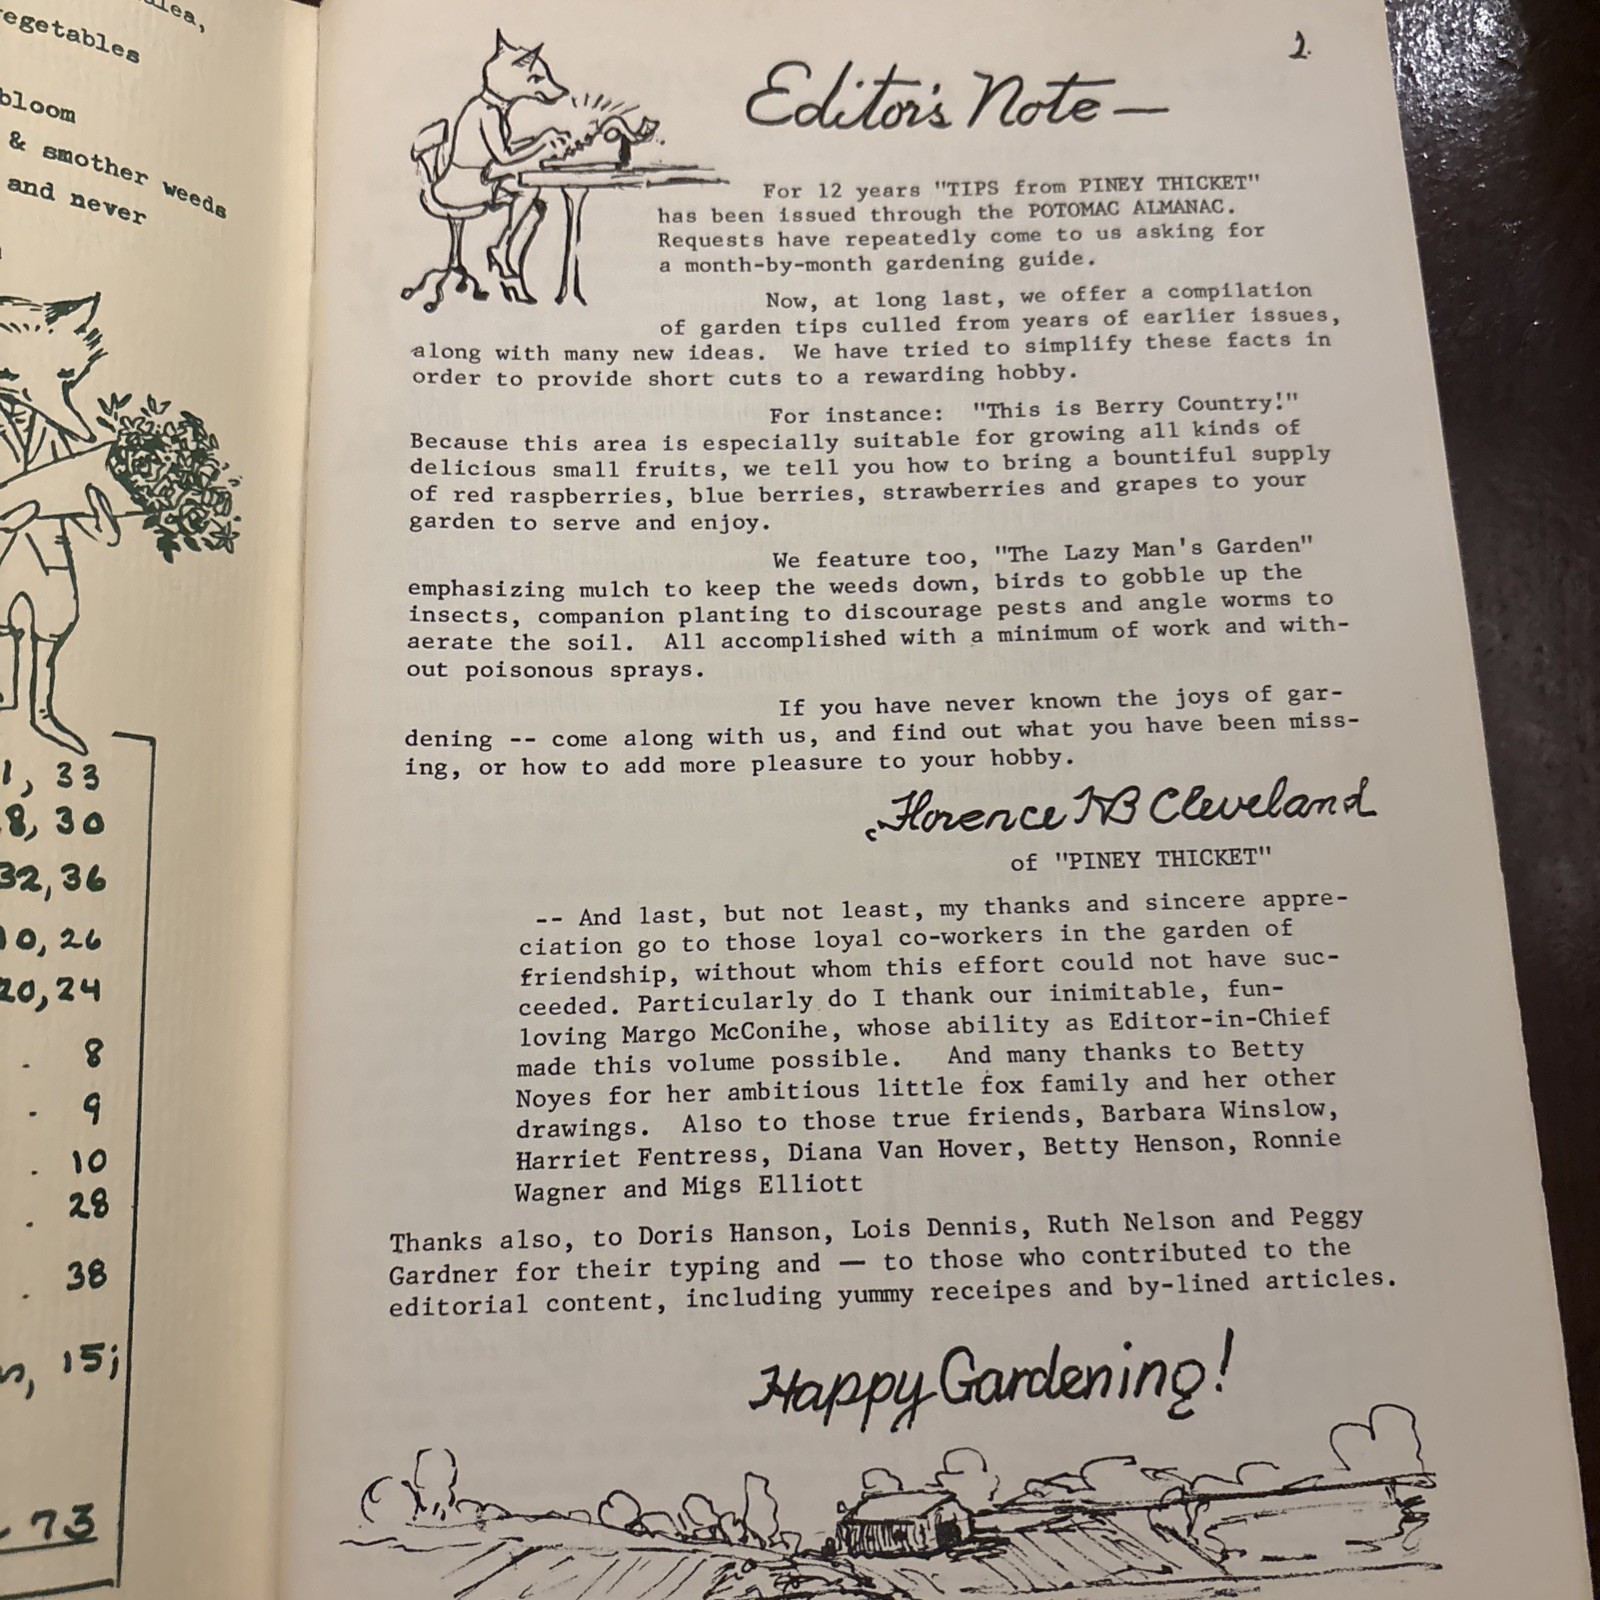 egetables
bloom
& smother weeds
and never
1, 33
8, 30
32, 36
10, 26
20, 24
. 8
. 9
. 10
. 28
. 38
15;
73
2.
Editor's Note —
For 12 years "TIPS from PINEY THICKET"
has been issued through the POTOMAC ALMANAC.
Requests have repeatedly come to us asking for
a month-by-month gardening guide.
Now, at long last, we offer a compilation
of garden tips culled from years of earlier issues,
along with many new ideas. We have tried to simplify these facts in
order to provide short cuts to a rewarding hobby.
For instance: "This is Berry Country!"
Because this area is especially suitable for growing all kinds of
delicious small fruits, we tell you how to bring a bountiful supply
of red raspberries, blue berries, strawberries and grapes to your
garden to serve and enjoy.
We feature too, "The Lazy Man's Garden"
emphasizing mulch to keep the weeds down, birds to gobble up the
insects, companion planting to discourage pests and angle worms to
aerate the soil. All accomplished with a minimum of work and with-
out poisonous sprays.
If you have never known the joys of gar-
dening -- come along with us, and find out what you have been miss-
ing, or how to add more pleasure to your hobby.
Florence HB Cleveland
of "PINEY THICKET"
-- And last, but not least, my thanks and sincere appre-
ciation go to those loyal co-workers in the garden of
friendship, without whom this effort could not have suc-
ceeded. Particularly do I thank our inimitable, fun-
loving Margo McConihe, whose ability as Editor-in-Chief
made this volume possible. And many thanks to Betty
Noyes for her ambitious little fox family and her other
drawings. Also to those true friends, Barbara Winslow,
Harriet Fentress, Diana Van Hover, Betty Henson, Ronnie
Wagner and Migs Elliott
Thanks also, to Doris Hanson, Lois Dennis, Ruth Nelson and Peggy
Gardner for their typing and — to those who contributed to the
editorial content, including yummy receipes and by-lined articles.
Happy Gardening!